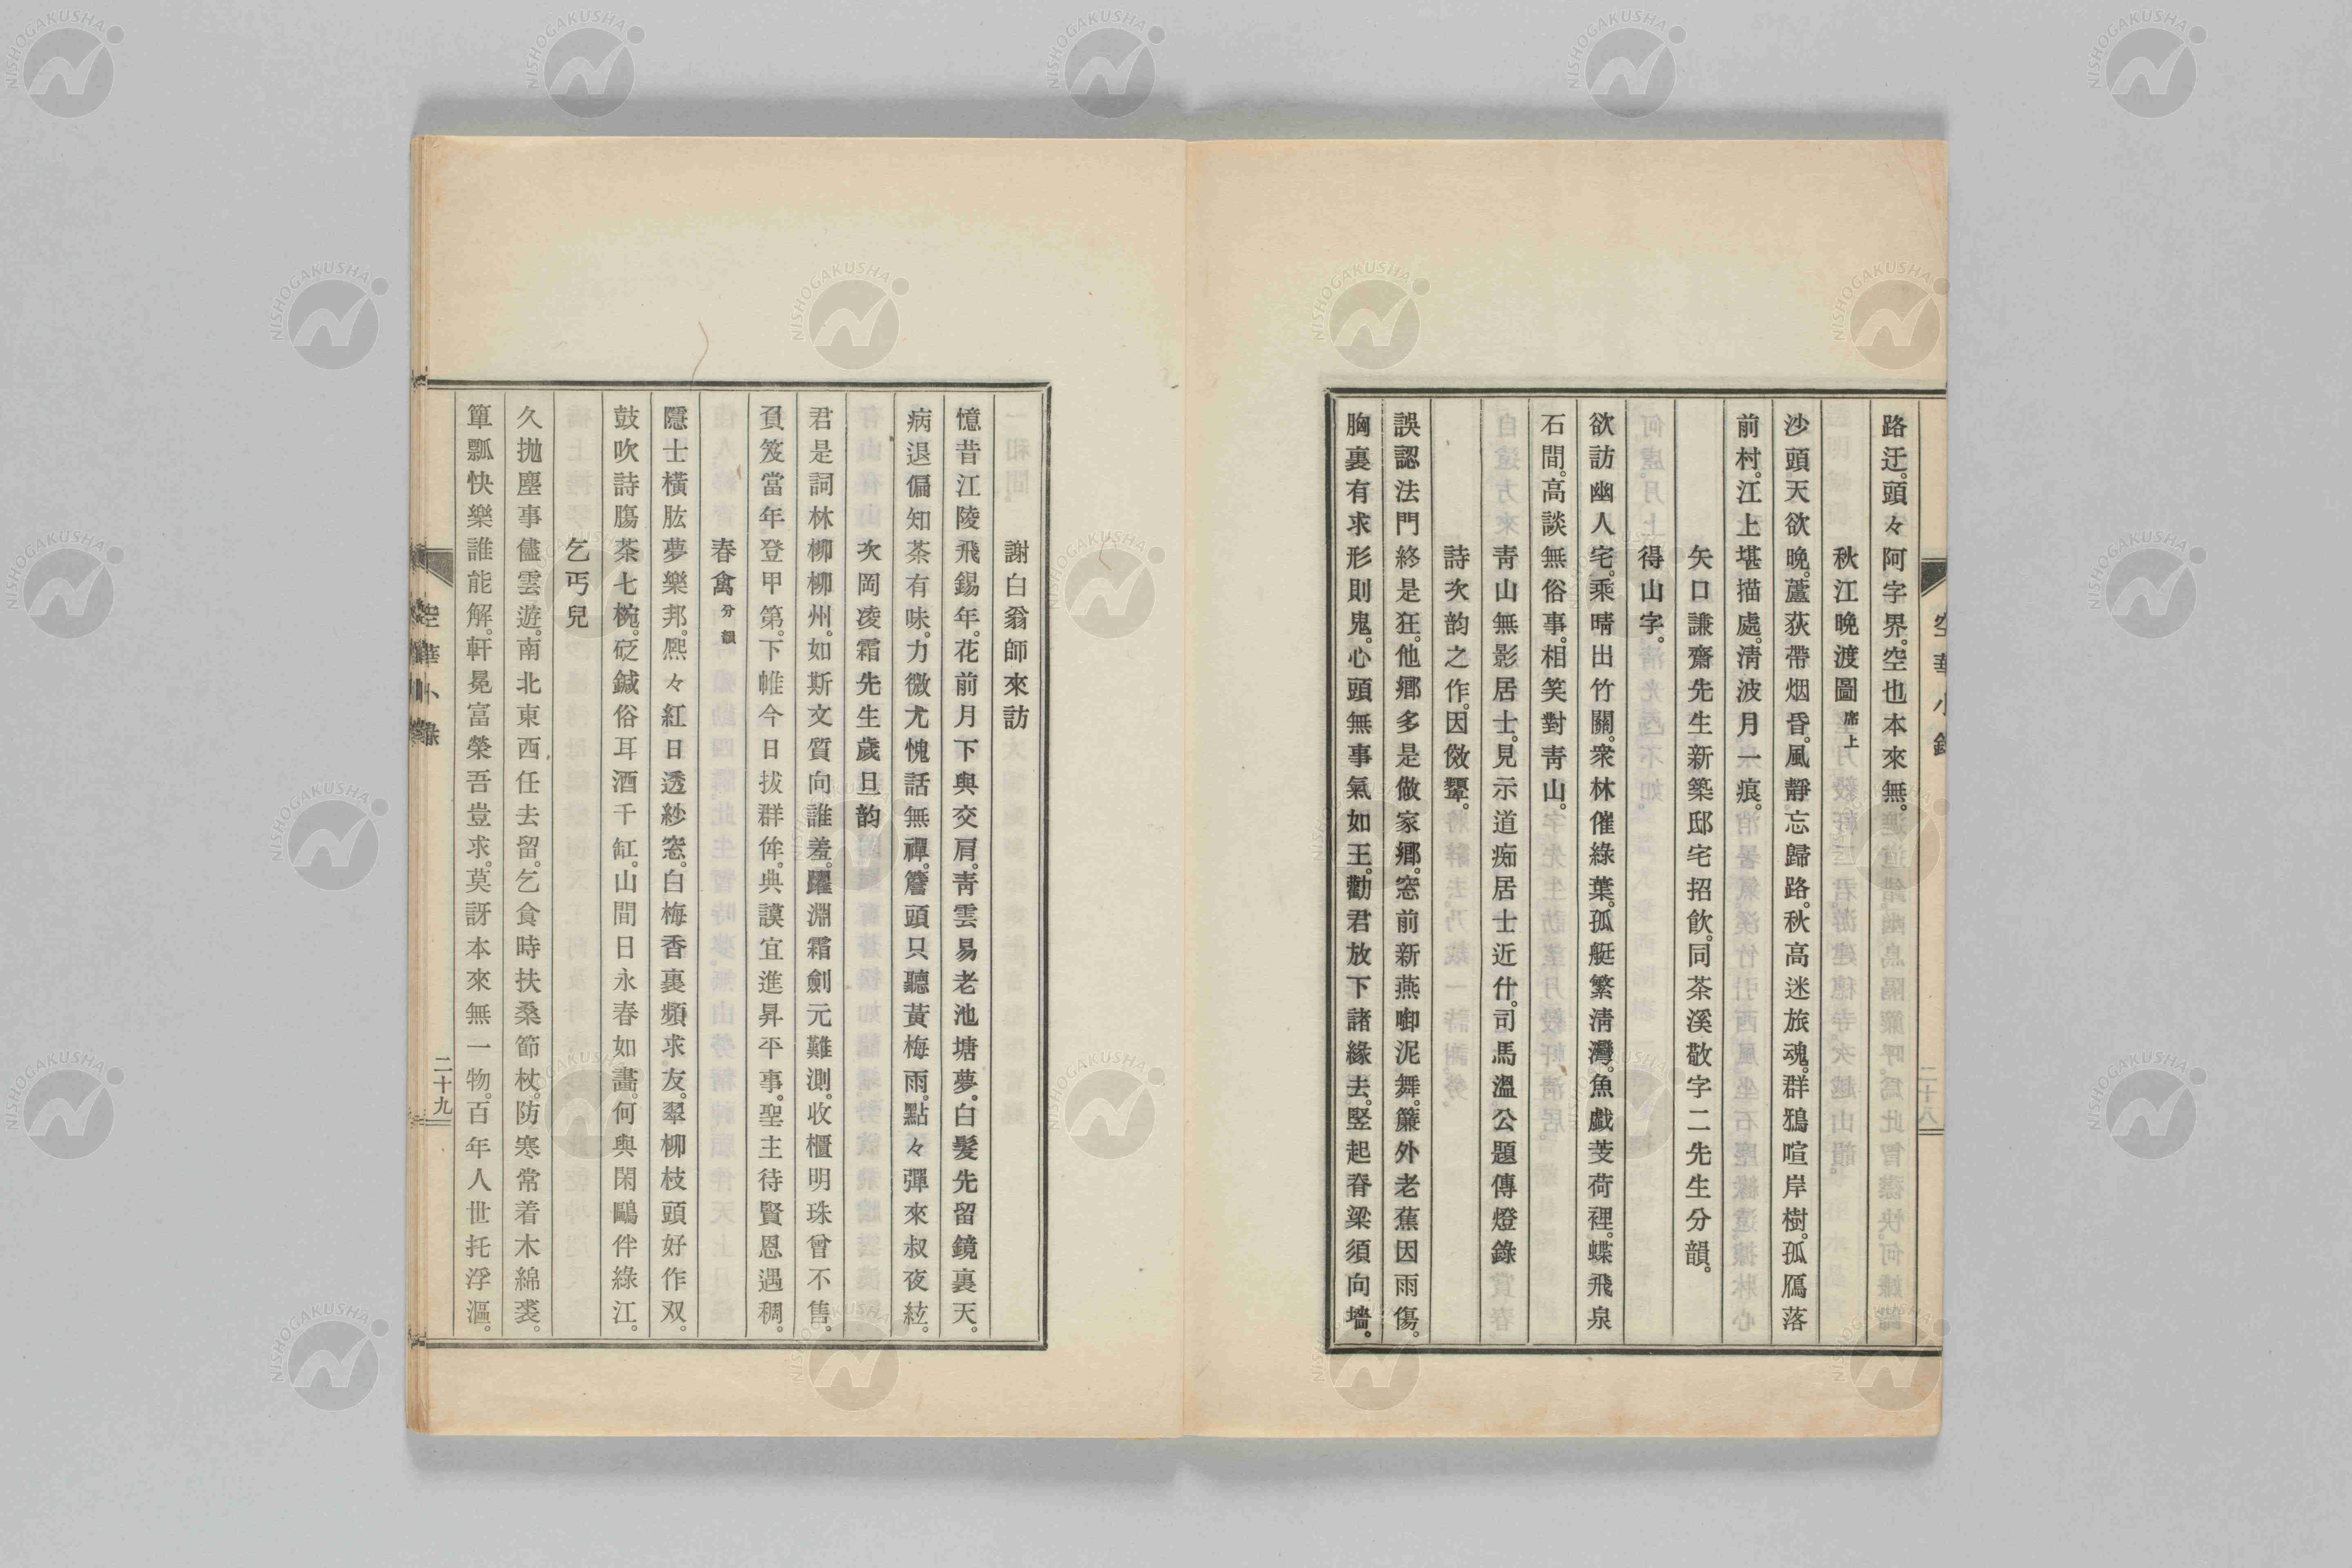 路迂。頭々阿字界。空也本來無。
秋江晚渡圖席上
沙頭天欲晚。蘆荻帶烟昏。風靜忘歸路。秋高迷旅魂。群鴉喧岸樹。孤鴈落
前村。江上堪描處。淸波月一痕。
矢口謙齋先生新築邸宅招飮。同茶溪敬字二先生分韻。
得山字。
欲訪幽人宅。乘晴出竹關。衆林催綠葉。孤艇繁淸灣。魚戯芰荷裡。蝶飛泉
石間。高談無俗事。相笑對靑山。
靑山無影居士。見示道痴居士近什。司馬溫公題傳燈錄
詩次韵之作。因傚顰。
誤認法門終是狂。他鄕多是做家鄕。窓前新燕啣泥舞。簾外老蕉因雨傷。
胸裏有求形則鬼。心頭無事氣如王。勸君放下諸緣去。竪起脊梁須向墻。
空華小錄
二十八
謝白翁師來訪
憶昔江陵飛錫年。花前月下與交肩。靑雲易老池塘夢。白髮先留鏡裏天。
病退偏知茶有味。力微尤愧話無禪。簷頭只聽黃梅雨。點々彈來叔夜絃。
次岡凌霜先生歲旦韵
君是詞林柳柳州。如斯文質向誰羞。躍淵霜劍元難測。收櫃明珠曾不售。
負笈當年登甲第。下帷今日拔群侔。典謨宜進昇平事。聖主待賢恩遇稠。
春禽分韻
隱士橫肱夢樂邦。熈々紅日透紗窓。白梅香裏頻求友。翠柳枝頭好作双。
鼓吹詩膓茶七椀。砭鍼俗耳酒千缸。山間日永春如畵。何與閑鷗伴綠江。
乞丐兒
久抛塵事儘雲遊。南北東西任去留。乞食時扶桑節杖。防寒常着木綿裘。
簞瓢快樂誰能解。軒冕富榮吾豈求。莫訝本來無一物。百年人世托浮漚。
空華小錄
二十九
NISHOGAKUSHA